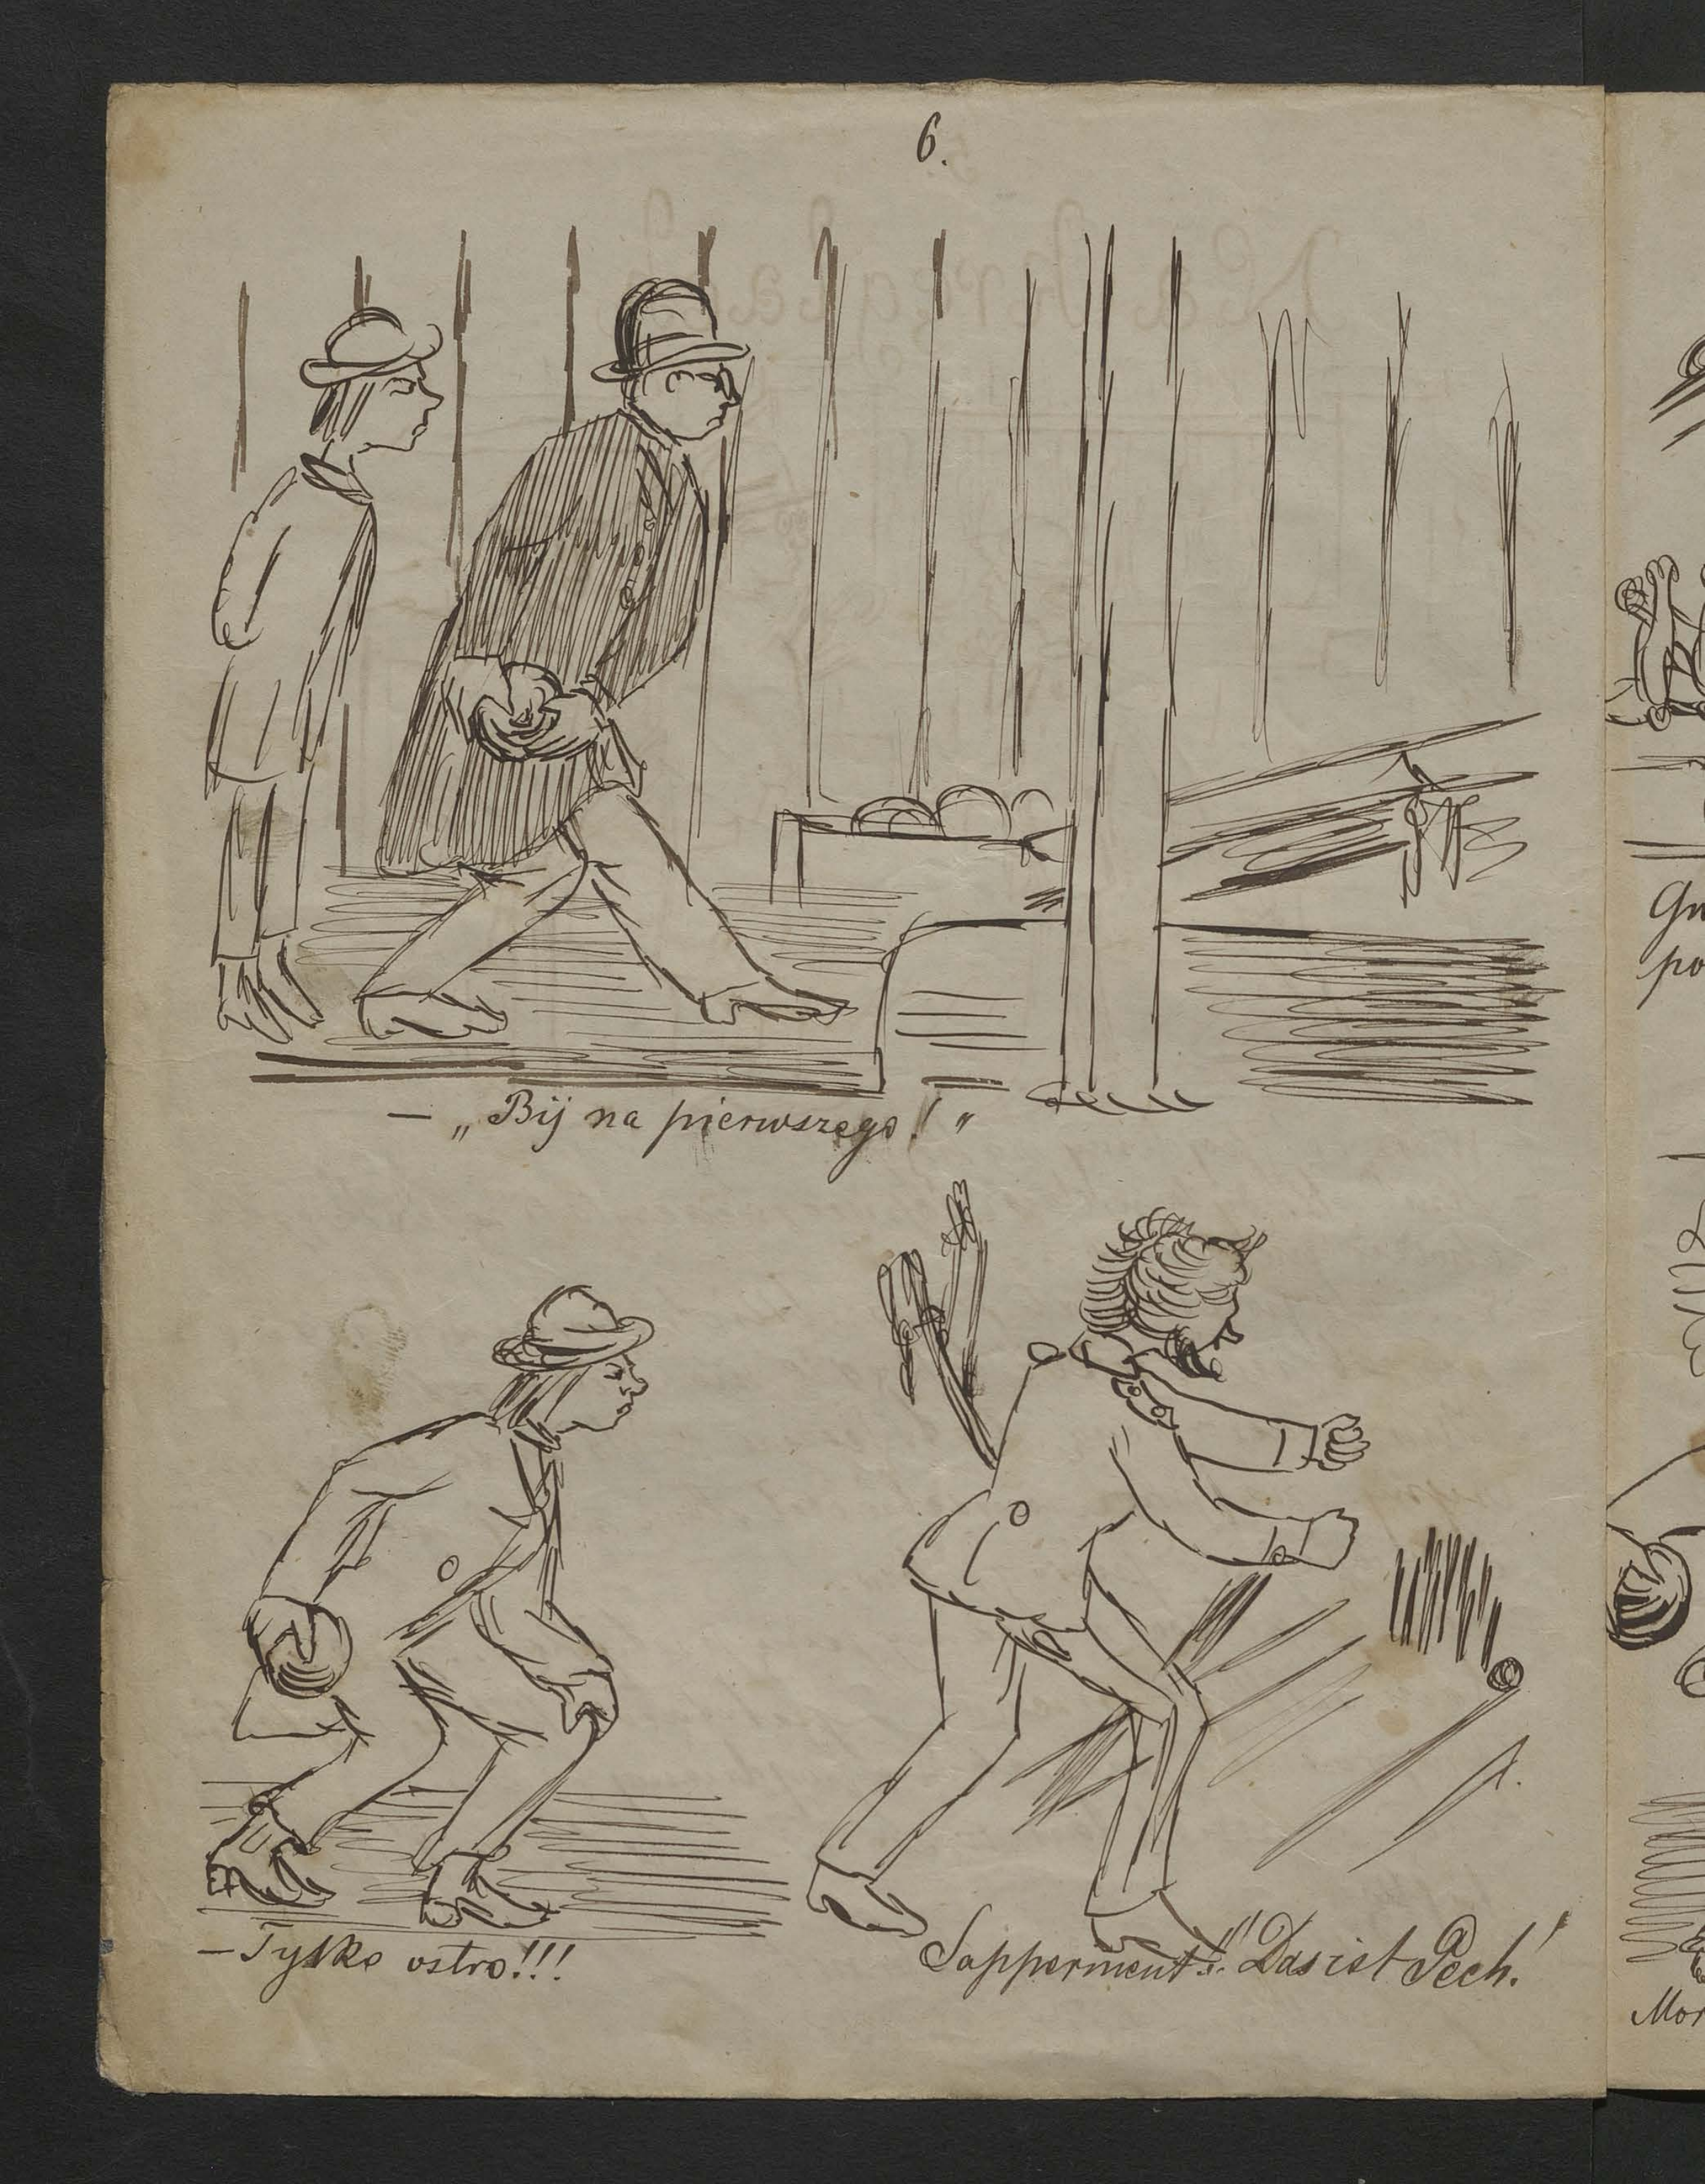 6.
— „Bij na pierwszego!"
— Tylko ostro!!!
Sapperment!!! Das ist Pech!
Gn
po
Mor